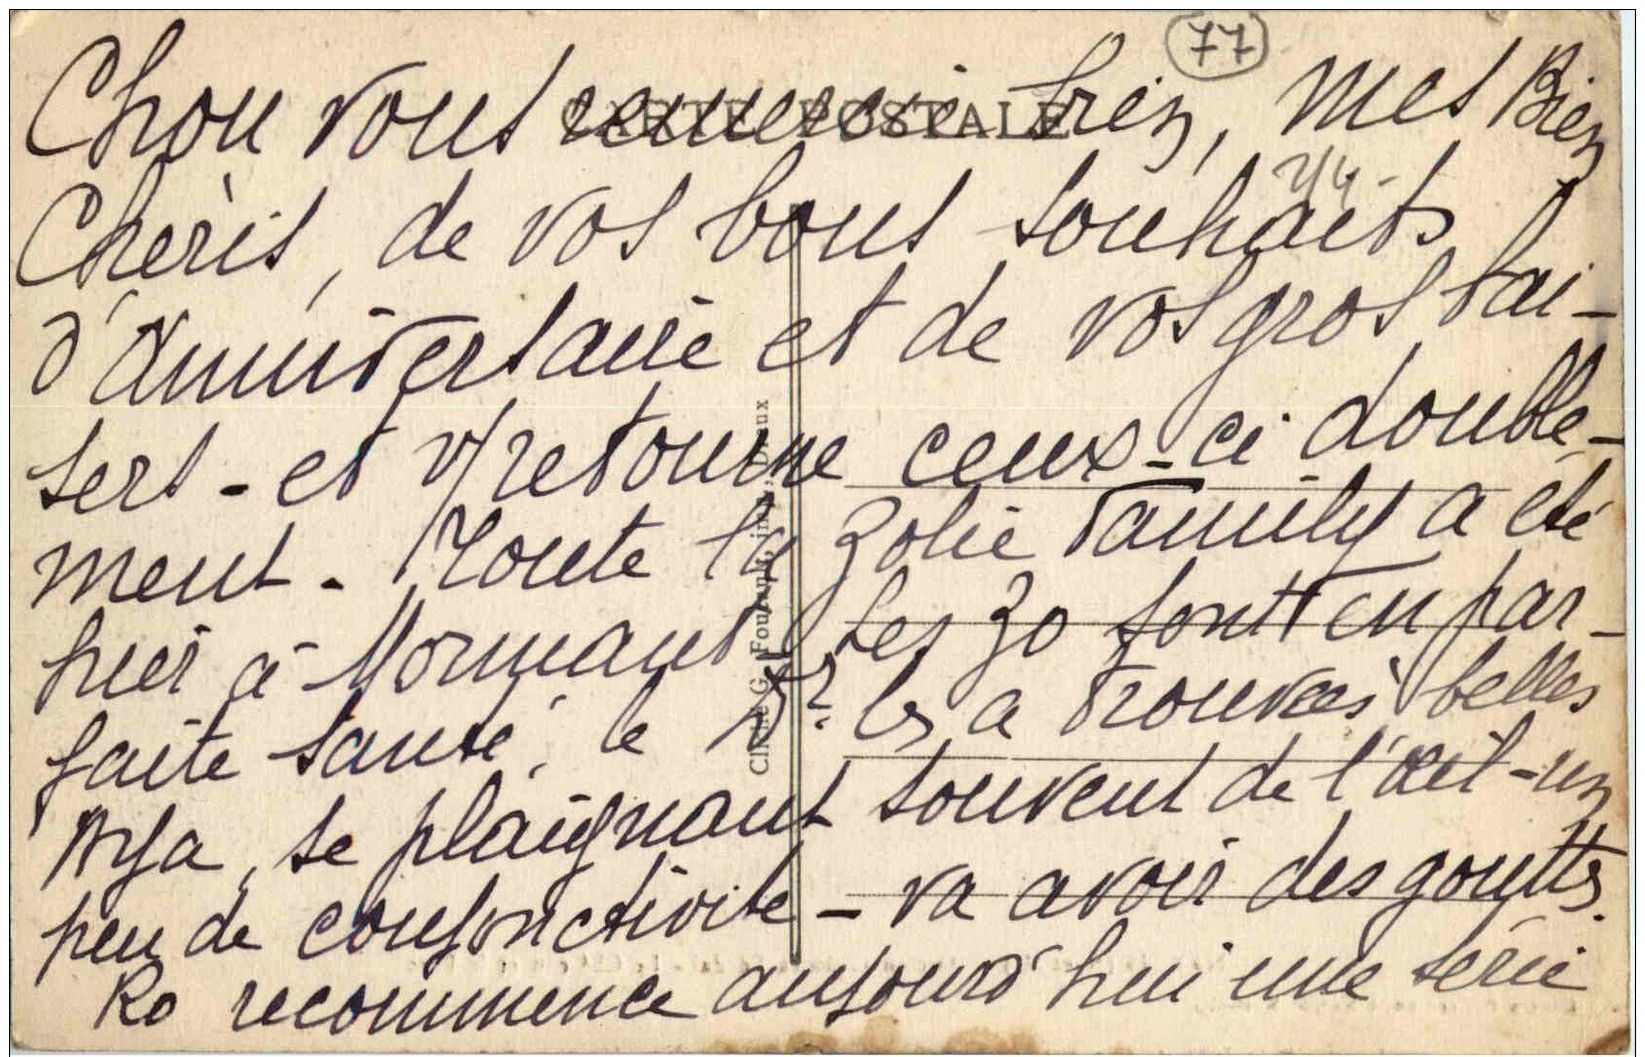 77
CARTE POSTALE
Chou vous remercie bien, mes Bien
Chèris, de vos bons souhaits
d'anniversaire et de vos gros bai-
sers - et v/retourne ceux-ci double-
ment. Toute la zolie family a été
hier à Mormant. Les zo sont en par-
faite santé, le Dr. les a trouvées belles
Mya, se plaignant souvent de l'œil - un
peu de conjonctivite - va avoir des gouttes.
Ro recommence aujourd'hui une série
Cliché G. imp.